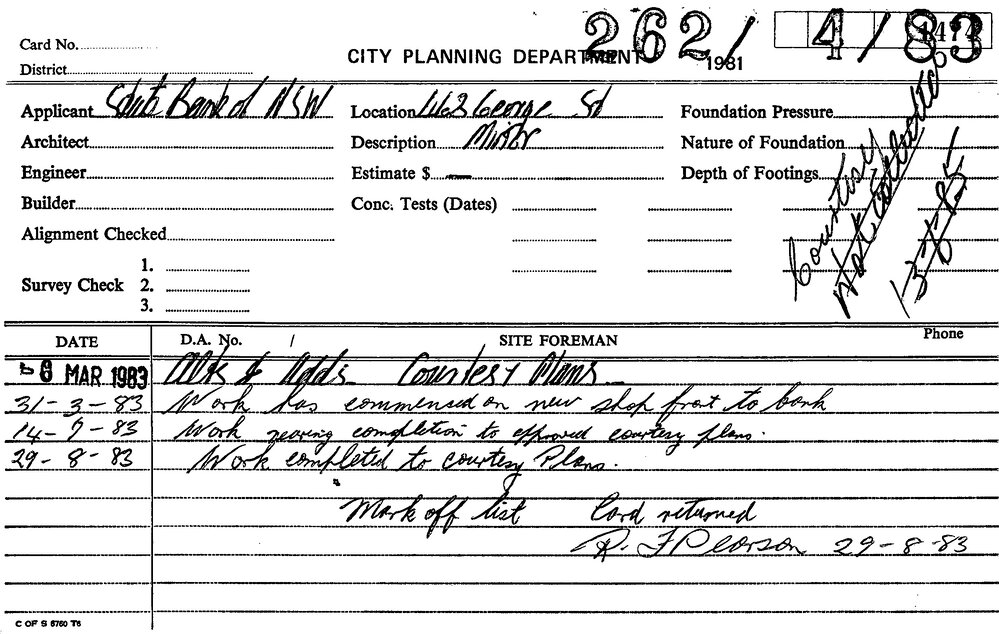 Card No.
District
CITY PLANNING DEPARTMENT
262/ 4/83
1981
Applicant State Bank of NSW
Architect
Engineer
Builder
Alignment Checked
Survey Check 1.
2.
3.
Location 463 George St
Description Minor
Estimate $ —
Conc. Tests (Dates)
Foundation Pressure
Nature of Foundation
Depth of Footings
Courtesy
Not Collected
DATE D.A. No. / SITE FOREMAN Phone
MAR 1983 Alts & Adds Courtesy Plans
31-3-83 Work has commensed on new shop front to bank
14-7-83 Work nearing completion to approved courtesy plans.
29-8-83 Work completed to courtesy Plans.
Mark off list Card returned
R. F Pearson 29-8-83
C OF S 6760 T6